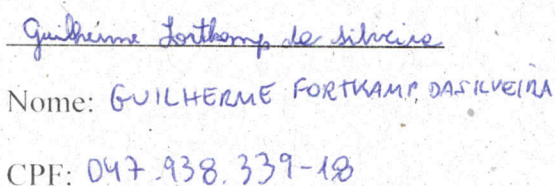 Guilherme Fortkamp da Silveira
Nome: GUILHERME FORTKAMP DASILVEIRA
CPF: 047.938.339-18